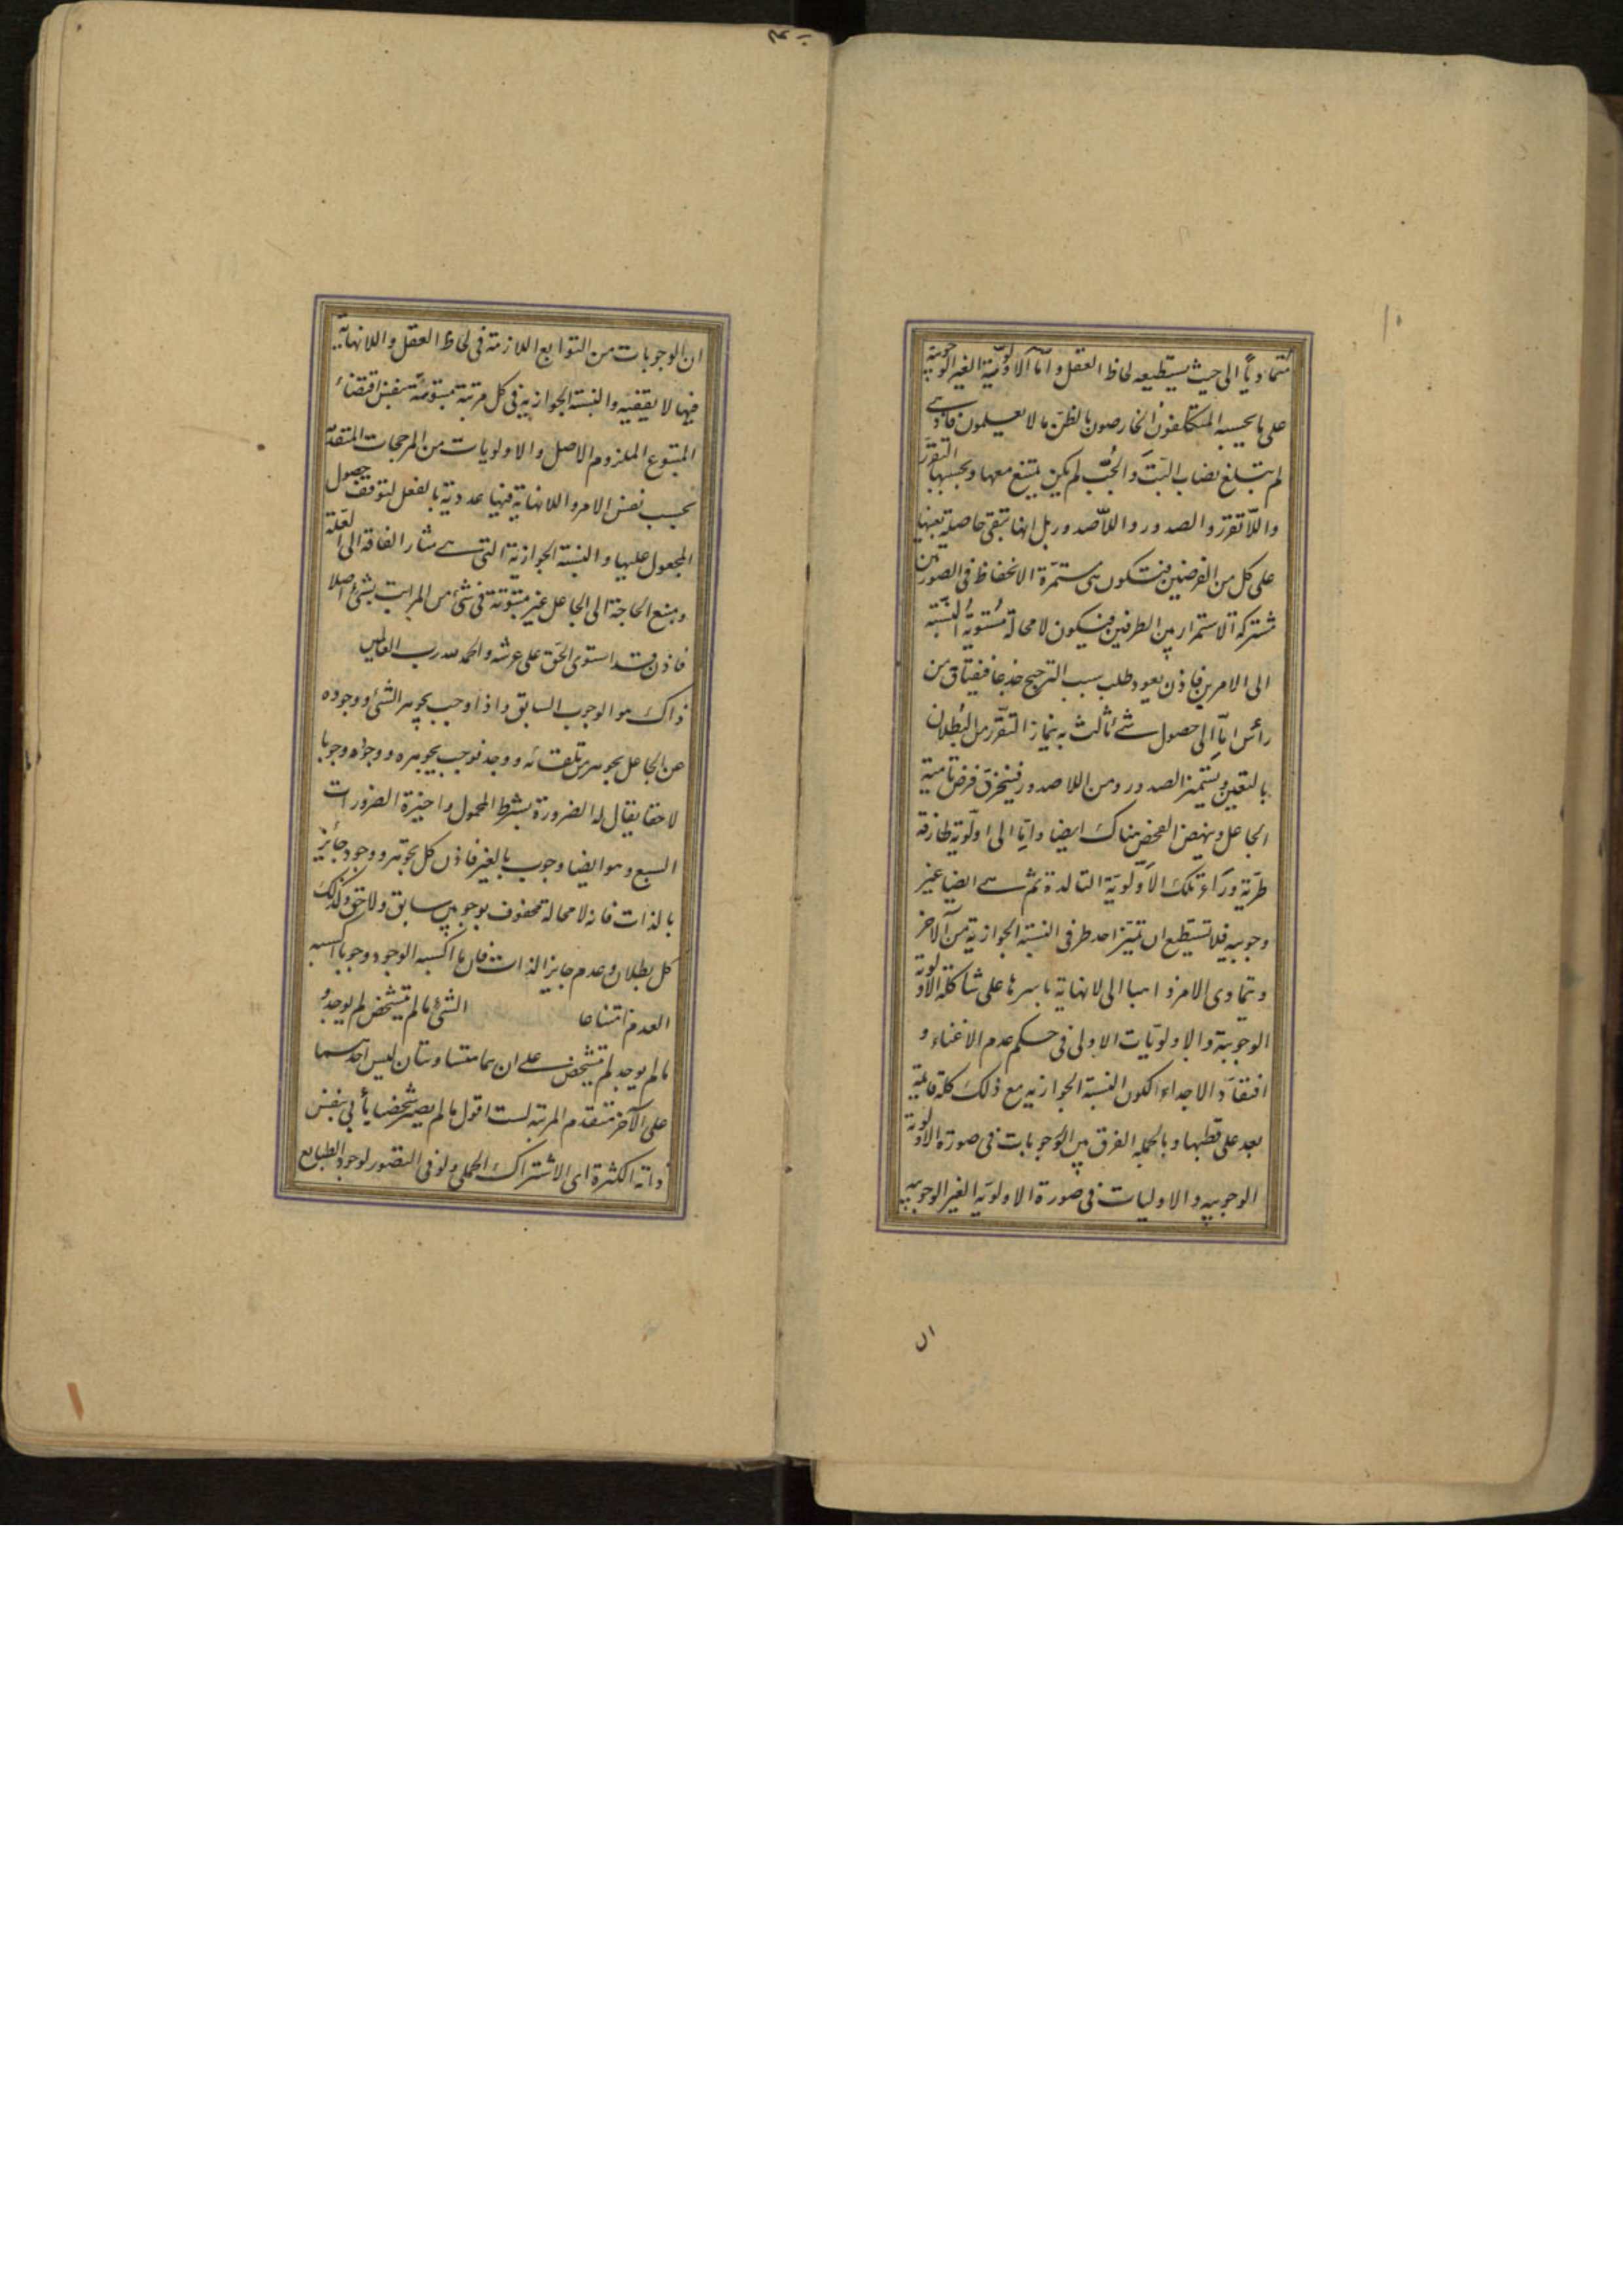 متمادياً الى حيث يستطيعه لحاظ العقل واما الاولوية الغير الوجوبية
على ما يحسبه المتكلفون الخارصون بالظن ما لا يعلمون فاذ هى
لم تبلغ نصاب البَتّ والجُبّ لم يكن يمتنع معها وبحسبها التقرر
واللاتقرر والصدور واللاصدور بل انها تبقى حاصلة بعينها
على كل من الفرضين فتكون هى مستمرة الانحفاظ فى الصورتين
مشتركة الاستمرار بين الطرفين فيكون لا محالة مستوية النسبة
الى الامرين فاذن يعود طلب سبب الترجيح جذعا فيفتاق من
رأس اما الى حصول شئ ثالث به ينماز التقرر من البطلان
بالتعين ويتميز الصدور ومن اللاصدور فينخرق فرض تامية
الجاعل وينهض الفحص هناك ايضا واما الى اولوية طارفة
طريّة وراء تلك الاولوية التالدة ثم هى ايضا غير
وجوبية فلا تستطيع ان تميز احد طرفى النسبة الجوازية من الآخر
ويتمادى الامر ذاهبا الى لا نهاية باسرها على شاكلة الاولوية
الوجوبية والاولويات الاولى فى حكم عدم الاغناء و
افتقاد الاجداء لكون النسبة الجوازية مع ذلك كله باقية
بعد على قطبها وبالجملة الفرق بين الوجوبات فى صورة الاولوية
الوجوبية والاوليات فى صورة الاولوية الغير الوجوبية
ان
ان الوجوبات من التوابع اللازمة فى لحاظ العقل واللانهاية
فيها لا يقفية والنسبة الجوازية فى كل مرتبة مبتوتة بنفس اقتضاء
المتبوع الملزوم الاصل والاولويات من المرجحات المتقدمة
بحسب نفس الامر واللانهاية فيها عددية بالفعل لتوقف حصول
المجعول عليها والنسبة الجوازية التى هى مثار الفاقة الى العلة
ومنبع الحاجة الى الجاعل غير مبتوتة فى شئ من المراتب بشئ اصلا
فاذن قد استوى الحق على عرشه والحمد لله رب العالمين
ذاك هو الوجوب السابق واذا وجب تجوهر الشئ ووجوده
عن الجاعل تجوهر من تلقائه ووجد فوجب تجوهره ووجوده وجوبا
لاحقا يقال له الضرورة بشرط المحمول واخيرة الضرورات
السبع وهو ايضا وجوب بالغير فاذن كل تجوهر ووجود جائز
بالذات فانه لا محالة محفوف بوجوبين سابق ولاحق وكذلك
كل بطلان وعدم جايز الذات فان ما اكسبه الوجود وجوبا اكسبه
العدم امتناعا الشئ ما لم يتشخص لم يوجد و
ما لم يوجد لم يتشخص على ان هما متساوتان ليس احدهما
على الآخر متقدم المرتبة لست اقول ما لم يصر شخصا يأبى بنفس
ذاته الكثرة اى الاشتراك الحملى ولو فى التصور لوجود الطبايع